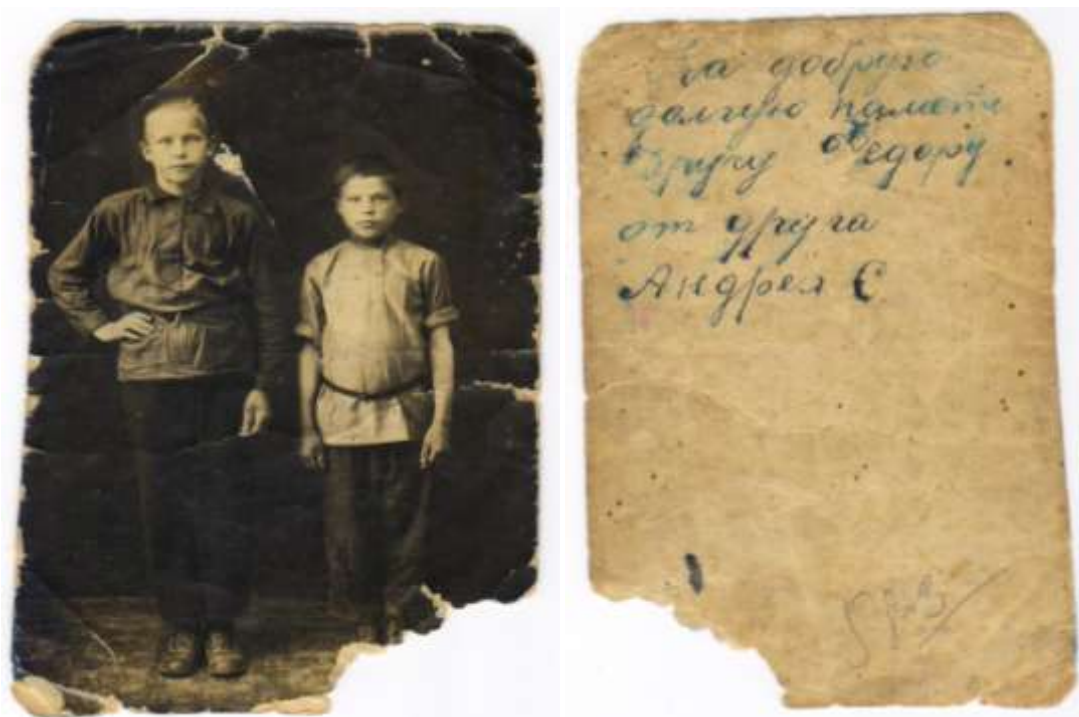 На добрую
долгую память
Другу Федору.
от друга
Андрея С